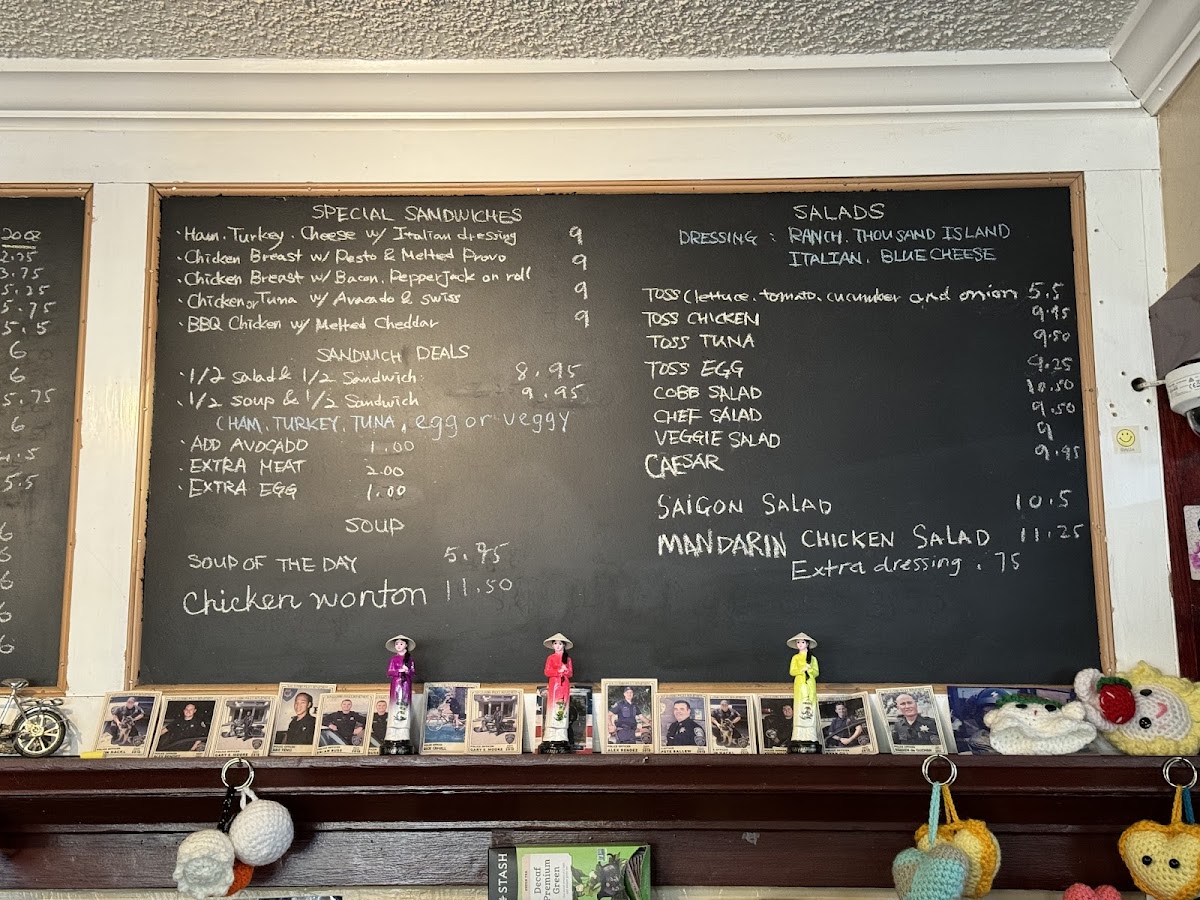 20oz
2.75
3.75
5.25
5.75
5.5
6
6
5.75
6
4.5
5.5
6
5
6
6
6
SPECIAL SANDWICHES
· Ham, Turkey, Cheese w/ Italian dressing 9
· Chicken Breast w/ Pesto & Melted Provo 9
· Chicken Breast w/ Bacon, Pepperjack on roll 9
· Chicken or Tuna w/ Avocado & swiss
· BBQ Chicken w/ Melted Cheddar 9
SANDWICH DEALS
· 1/2 salad & 1/2 Sandwich 8.95
· 1/2 soup & 1/2 Sandwich 9.95
(HAM, TURKEY, TUNA, egg or veggy
· ADD AVOCADO 1.00
· EXTRA MEAT 2.00
· EXTRA EGG 1.00
SOUP
SOUP OF THE DAY 5.95
Chicken wonton 11.50
SALADS
DRESSING : RANCH, THOUSAND ISLAND
ITALIAN, BLUE CHEESE
TOSS (lettuce, tomato, cucumber and onion 5.5
TOSS CHICKEN 9.95
TOSS TUNA 9.50
TOSS EGG 9.25
COBB SALAD 10.50
CHEF SALAD 9.50
VEGGIE SALAD 9
CAESAR 9.95
SAIGON SALAD 10.5
MANDARIN CHICKEN SALAD 11.25
Extra dressing .75
STASH
Decaf
Premium
Green